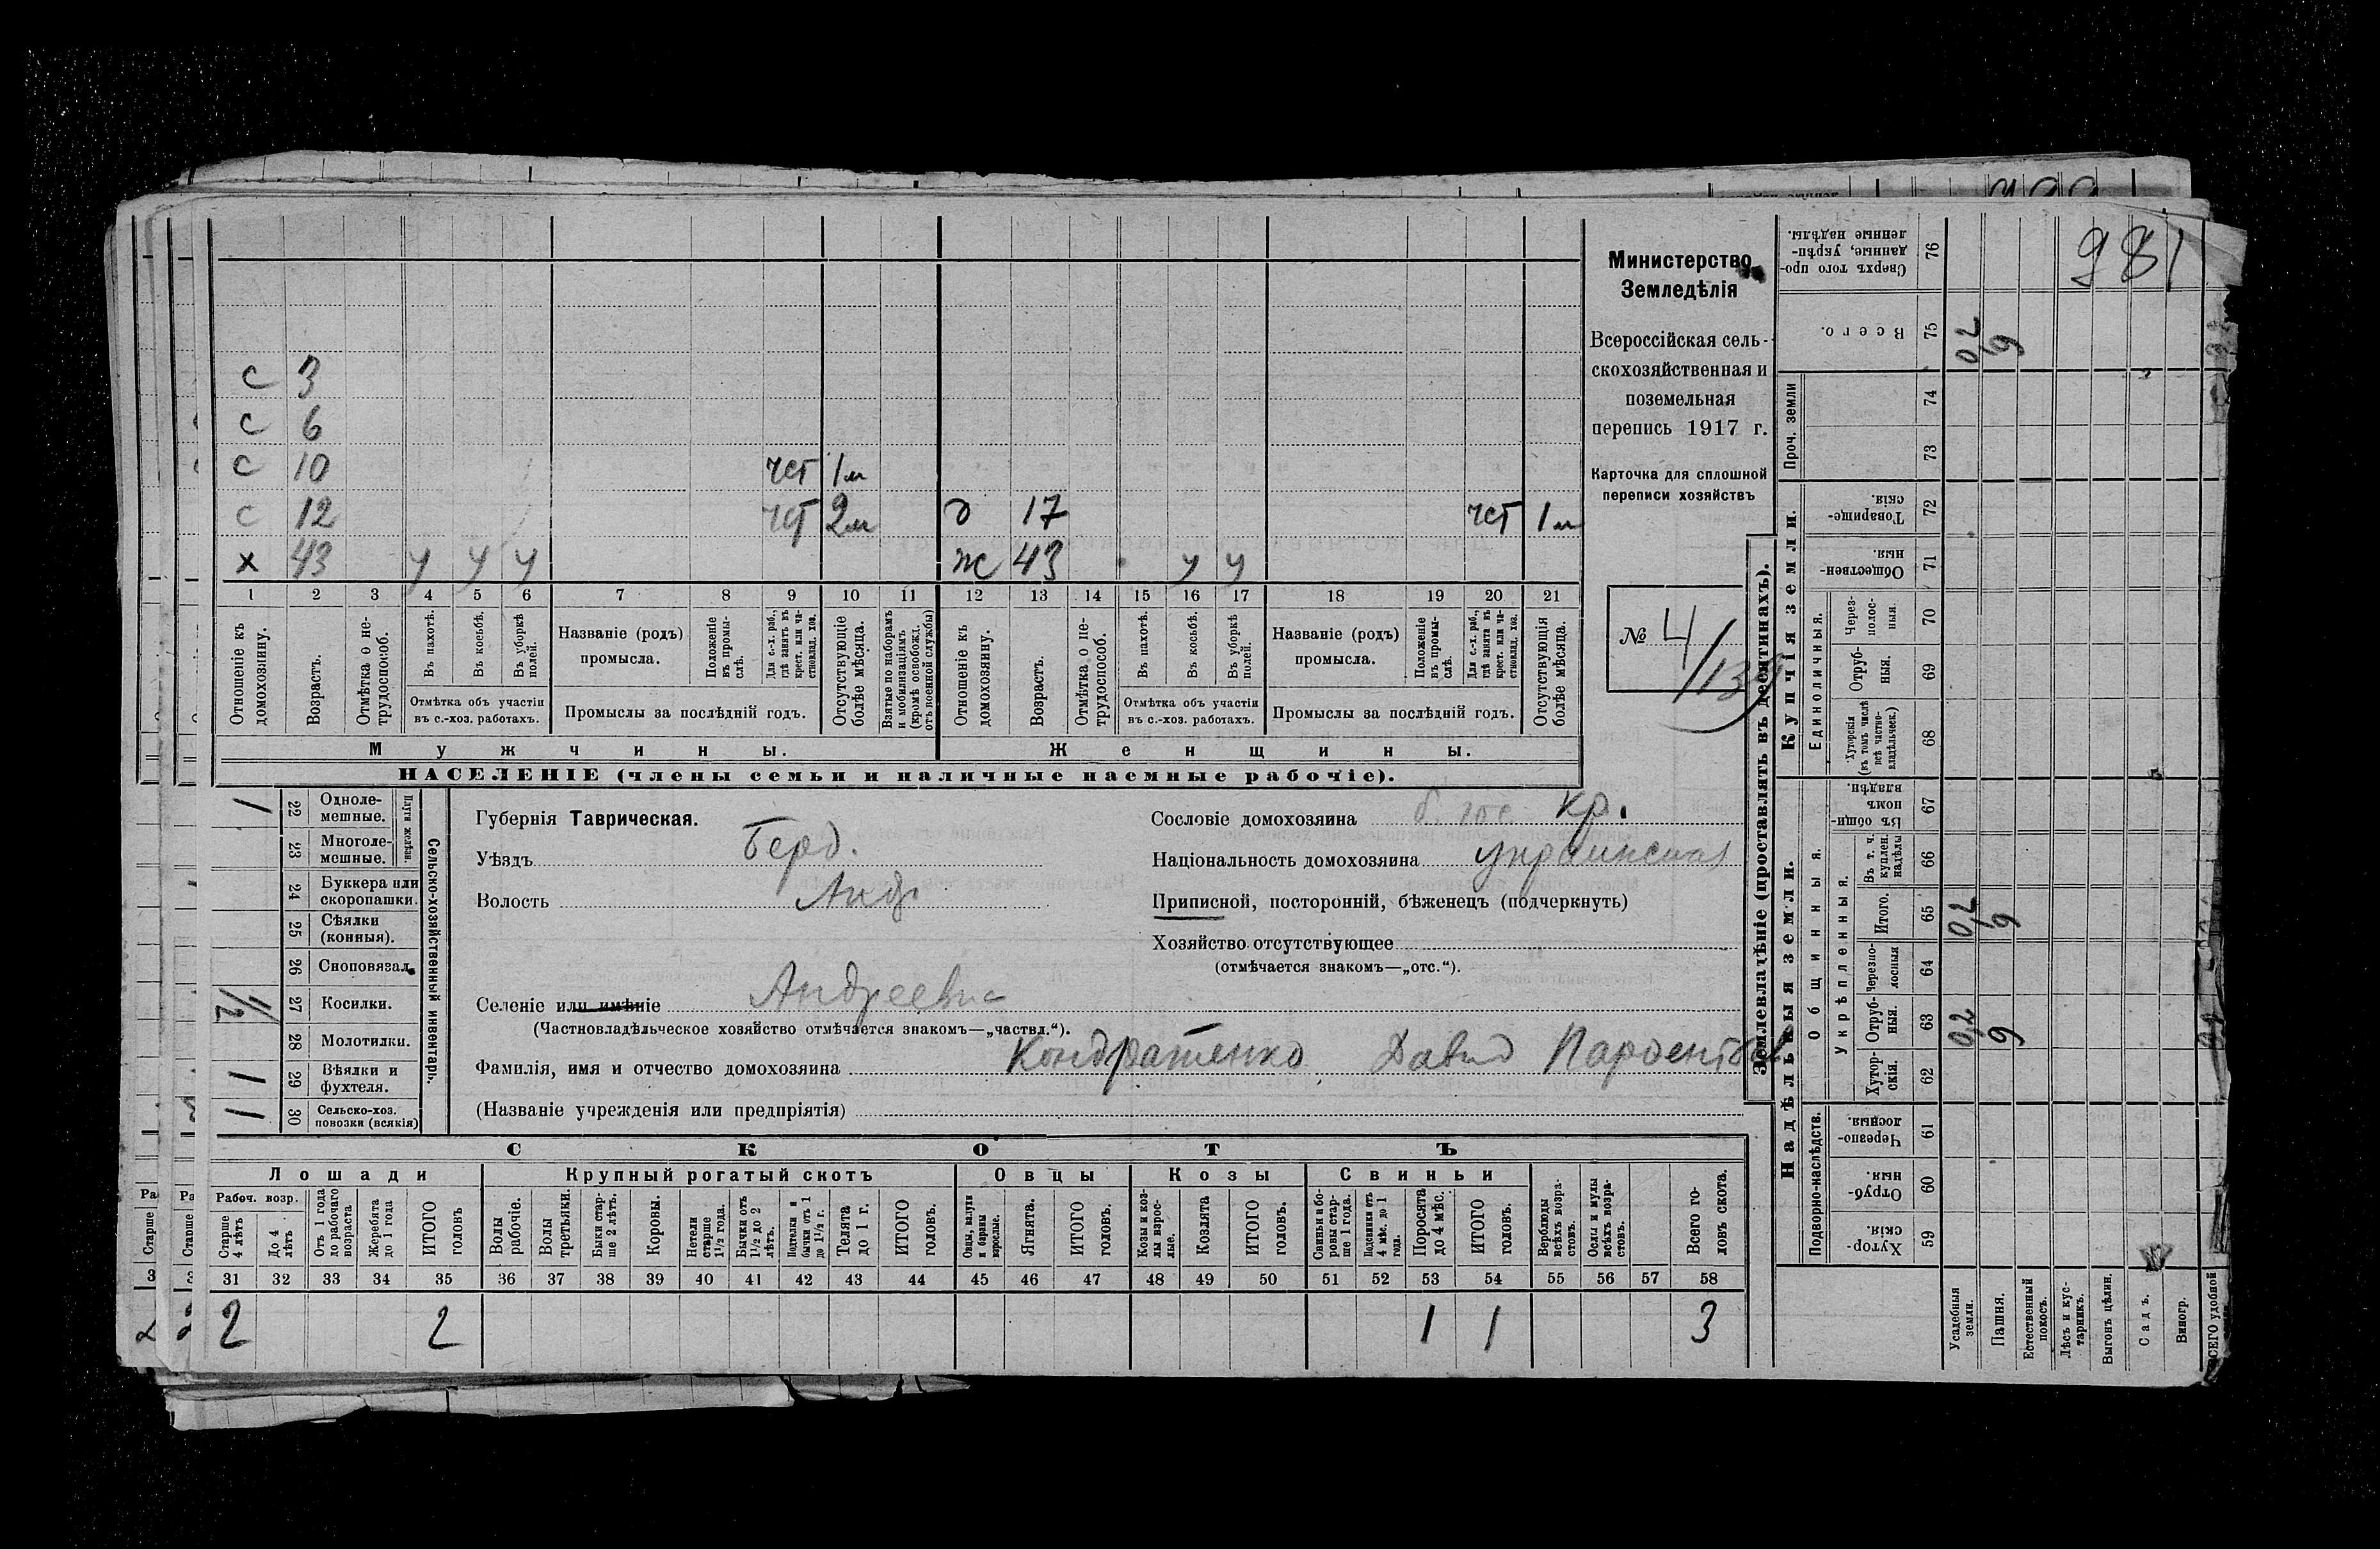 981
Министерство
Земледѣлія
Всероссійская сель-
скохозяйственная и
поземельная
перепись 1917 г.
Карточка для сплошной
переписи хозяйствъ
№ 4/
с 3
с 6
с 10 чст 1м
с 12 чст 2м д 17 чст 1м
х 43 у у у ж 43 у у
1 2 3 4 5 6 7 8 9 10 11 12 13 14 15 16 17 18 19 20 21
Отношеніе къ домохозяину.
Возрастъ.
Отмѣтка о не-трудоспособ.
Въ пахотѣ.
Въ косьбѣ.
Въ уборкѣ полей.
Отмѣтка объ участіи въ с.-хоз. работахъ.
Названіе (родъ) промысла.
Положеніе въ промы-слѣ.
Для с.-х. раб., гдѣ занятъ въ крест. или ча-стновлад. хоз.
Промыслы за послѣдній годъ.
Отсутствующіе болѣе мѣсяца.
Взятые по наборамъ и мобилизаціямъ (кромѣ освобожд. отъ военной службы)
Отношеніе къ домохозяину.
Возрастъ.
Отмѣтка о не-трудоспособ.
Въ пахотѣ.
Въ косьбѣ.
Въ уборкѣ полей.
Отмѣтка объ участіи въ с.-хоз. работахъ.
Названіе (родъ) промысла.
Положеніе въ промы-слѣ.
Для с.-х. раб., гдѣ занята въ крест. или ча-стновлад. хоз.
Промыслы за послѣдній годъ.
Отсутствующія болѣе мѣсяца.
Мужчины. Женщины.
НАСЕЛЕНІЕ (члены семьи и наличные наемные рабочіе).
Сельско-хозяйственный инвентарь.
Плуги желѣзн.
1 22 Одноле-мешные.
23 Многоле-мешные.
24 Буккера или скоропашки.
25 Сѣялки (конныя).
26 Сноповязал.
27 Косилки.
28 Молотилки.
1 1 29 Вѣялки и фухтеля.
1 1 30 Сельско-хоз. повозки (всякія)
Губернія Таврическая.
Уѣздъ Берд.
Волость Андр
Селеніе или имѣніе Андреевка
(Частновладѣльческое хозяйство отмѣчается знакомъ—„частвл.“).
Фамилія, имя и отчество домохозяина Кондратенко Давид
(Названіе учрежденія или предпріятія)
Сословіе домохозяина кр.
Національность домохозяина украинская
Приписной, посторонній, бѣженецъ (подчеркнуть)
Хозяйство отсутствующее
(отмѣчается знакомъ—„отс.“).
СКОТЪ
Лошади Крупный рогатый скотъ Овцы Козы Свиньи
Рабоч. возр.
Старше 4 лѣтъ
До 4 лѣтъ
Отъ 1 года до рабочаго возраста
Жеребята до 1 года
ИТОГО головъ
Волы рабочіе.
Волы третьяки.
Быки стар-ше 2 лѣтъ.
Коровы.
Нетели старше 1½ года.
Бычки отъ 1½ до 2 лѣтъ.
Подтелки и бычки отъ 1 до 1½ г.
Телята до 1 г.
ИТОГО головъ.
Овцы, валухи и бараны взрослые.
Ягнята.
ИТОГО головъ.
Козы и коз-лы взрос-лые.
Козлята
ИТОГО головъ.
Свиньи и бо-ровы стар-ше 1 года.
Подсвинки отъ 4 мѣс. до 1 года.
Поросята до 4 мѣс.
ИТОГО головъ.
Верблюды всѣхъ возра-стовъ.
Ослы и мулы всѣхъ возра-стовъ.
Всего го-ловъ скота.
31 32 33 34 35 36 37 38 39 40 41 42 43 44 45 46 47 48 49 50 51 52 53 54 55 56 57 58
2 2 1 1 3
Землевладѣніе (проставлять въ десятинахъ).
Надѣльныя земли. Купчія земли. Проч. земли
Подворно-наслѣдств.
Общинныя.
Укрѣпленныя.
Единоличныя.
Хутор-скія. 59
Отруб-ныя. 60
Черезпо-лосныя 61
Хутор-скія. 62
Отруб-ныя. 63 02 6
Черезпо-лосныя 64
Итого. 65 02 6
Въ т. ч. куплен. надѣлы 66
Въ общи-номъ владѣн. 67
Хуторскія (въ томъ числѣ всѣ частно-владѣльческ.) 68
Отруб-ныя. 69
Через-полос-ныя. 70
Обществен-ныя. 71
Товарище-скія. 72
73
74
Всего. 75 02 6
Сверхъ того про-данные, укрѣп-ленные надѣлы. 76
Усадебныя земли.
Пашня.
Естественный покосъ.
Лѣсъ и кус-тарникъ.
Выгонъ цѣлин.
Садъ.
Виногр.
ВСЕГО удобной